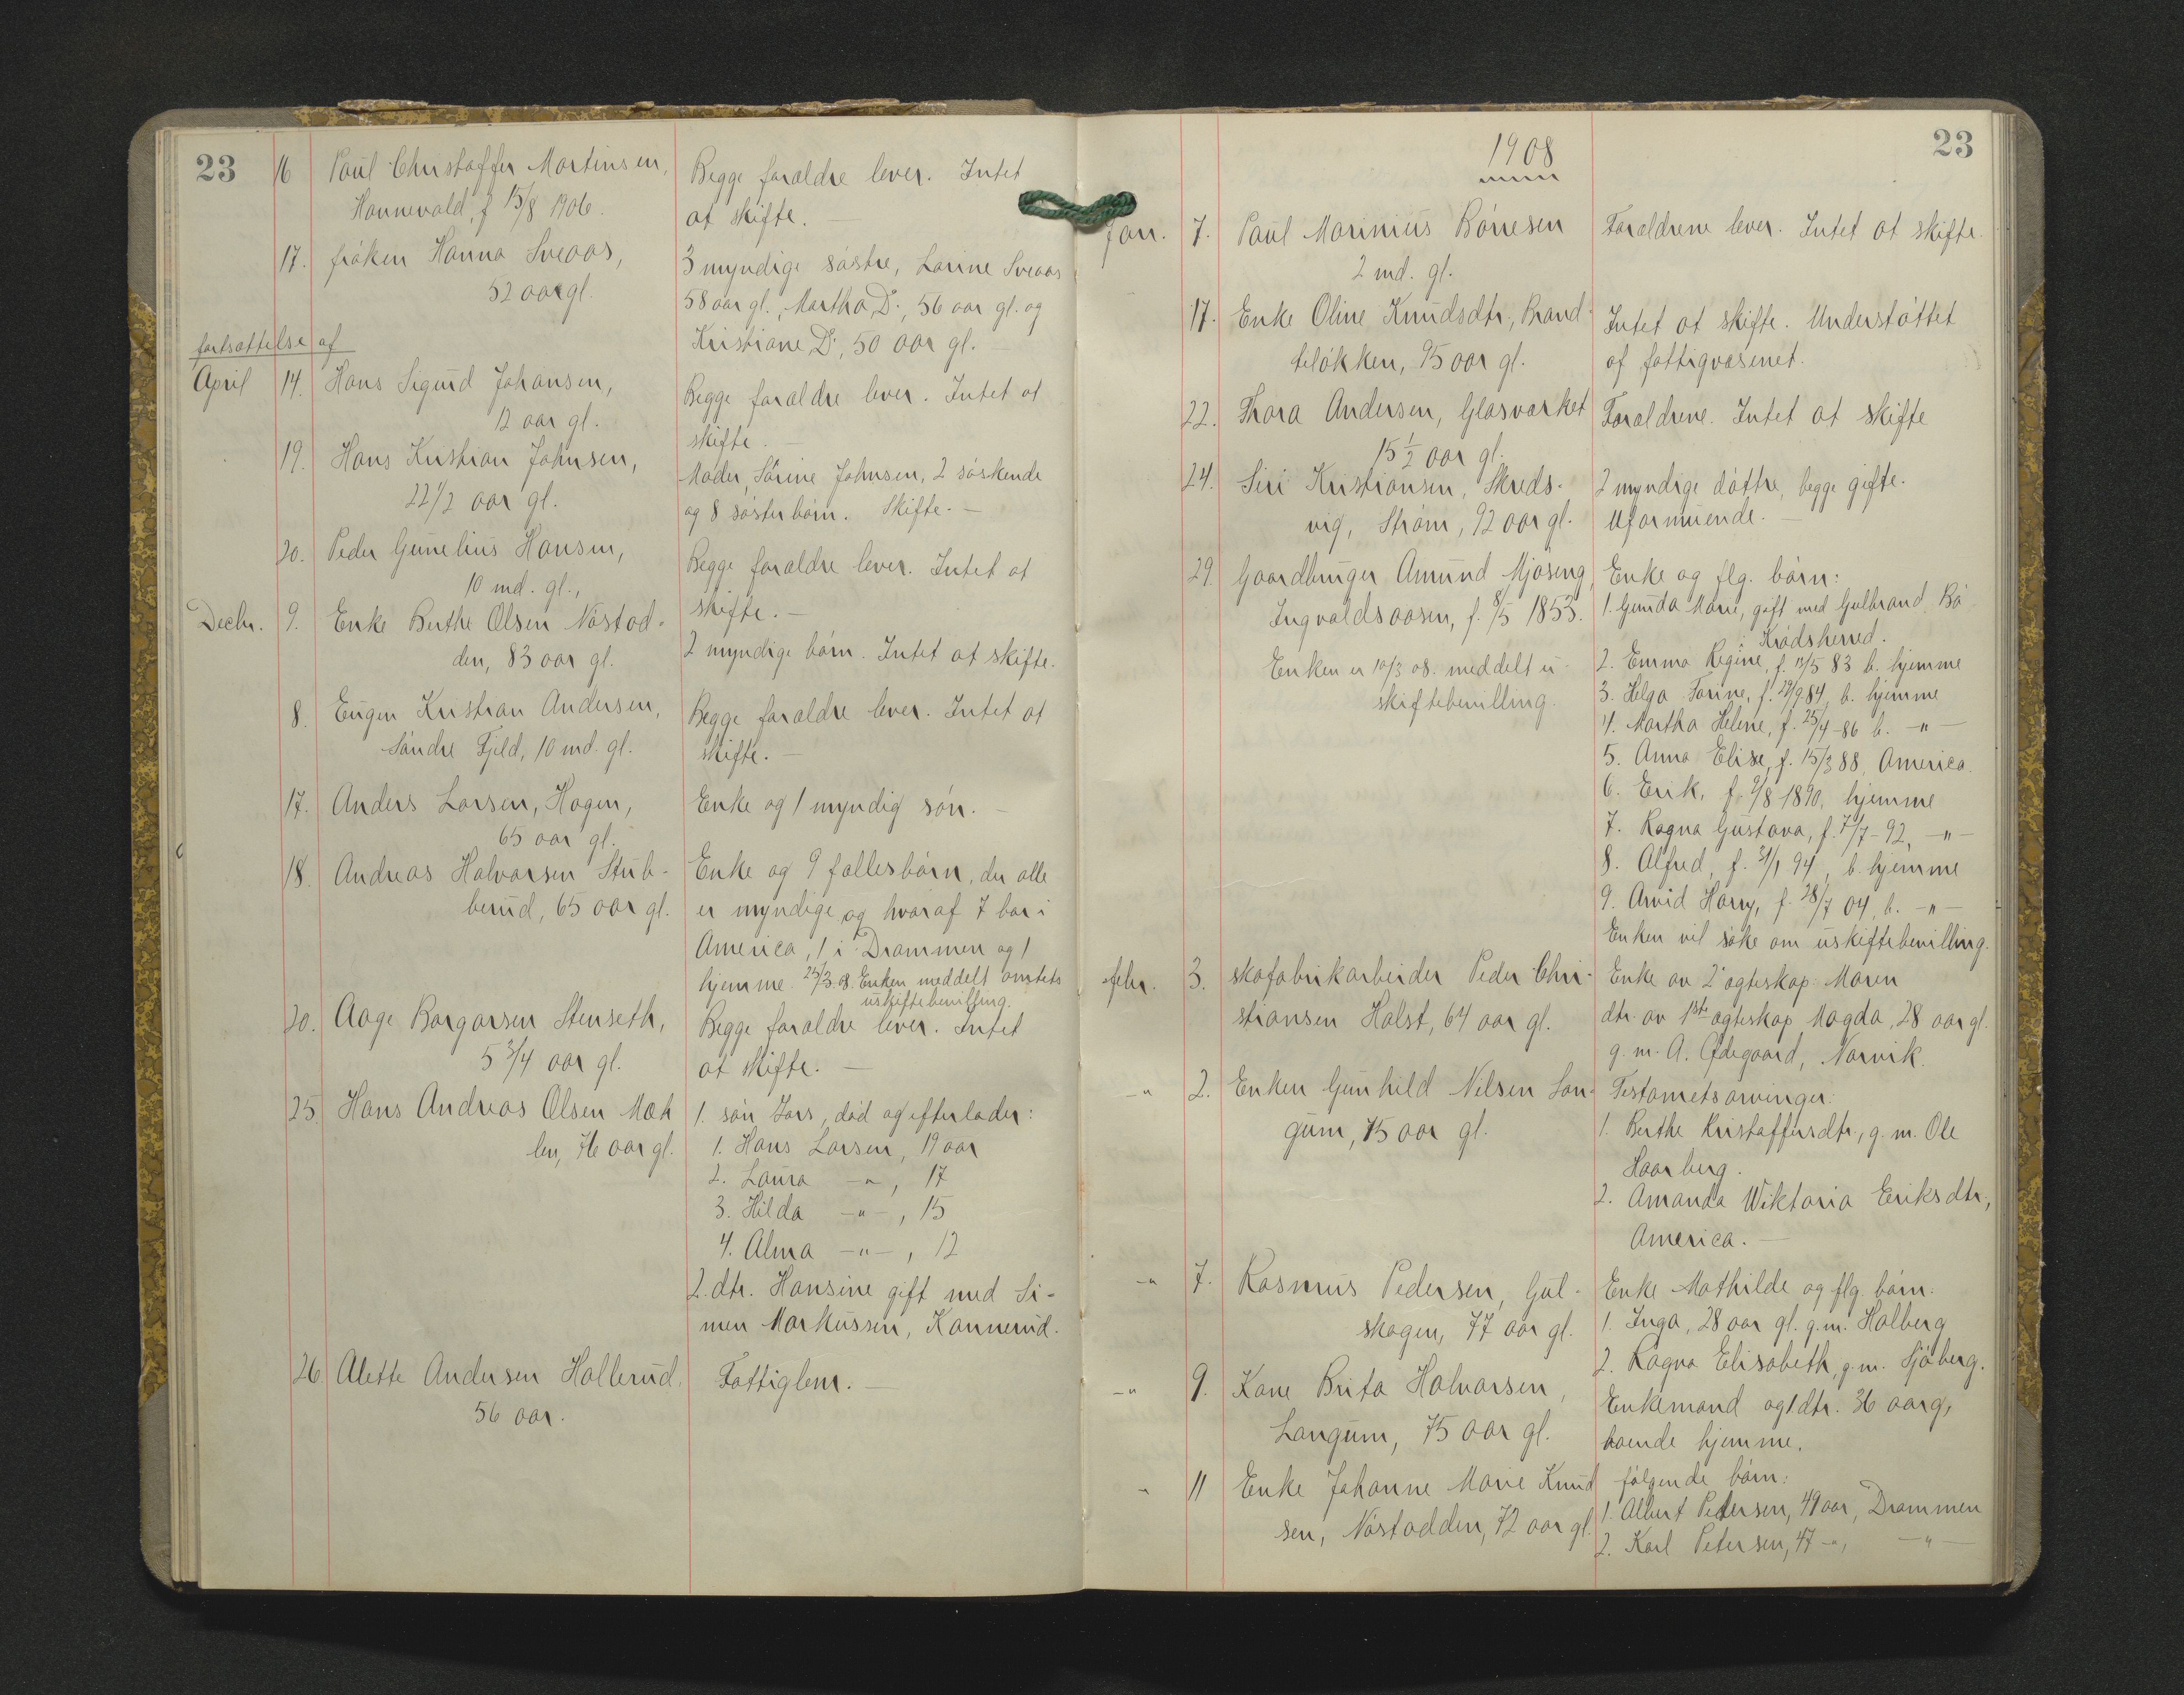 23
16 Paul Christoffer Martinsen,
Hannevold, f 15/8 1906.
Begge forældre lever. Intet
at skifte. —
17. frøken Hanna Sveaas,
52 aar gl.
3 myndige søstre, Larine Sveaas
58 aar gl., Martha Do, 56 aar gl. og
Kristiane Do, 50 aar gl. —
fortsættelse af
April 14. Hans Sigurd Johansen,
12 aar gl.
Begge forældre lever. Intet at
skifte. —
19. Hans Kristian Johnsen,
22 1/2 aar gl.
Moder, Sørine Johnsen, 2 søskende
og 8 søsterbørn. Skifte. —
20. Peder Gunelius Hansen,
10 md. gl.,
Begge forældre lever. Intet at
skifte. —
Decbr. 9. Enke Berthe Olsen Nøstod-
den, 83 aar gl.
2 myndige børn. Intet at skifte.
8. Eugen Kristian Andersen,
Søndre Fjeld, 10 md. gl.
Begge forældre lever. Intet at
skifte. —
17. Anders Larsen, Hagen,
65 aar gl.
Enke og 1 myndig søn. —
18. Andreas Halvorsen Stub-
berud, 65 aar gl.
Enke og 9 fællesbørn, der alle
er myndige og hvoraf 7 bor i
America, 1 i Drammen og 1
hjemme. 25/3 08. Enken meddelt amtets
uskiftebevilling.
20. Aage Borgarsen Stenseth,
5 3/4 aar gl.
Begge forældre lever. Intet
at skifte. —
25. Hans Andreas Olsen Mæh
len, 76 aar gl.
1. søn Lars, død og efterlader:
1. Hans Larsen, 19 aar
2. Laura —"—, 17
3. Hilda —"—, 15
4. Alma —"—, 12
2. dtr. Hansine gift med Si-
men Markussen, Kannerud.
26. Alette Andersen Hallerud,
56 aar.
Fattiglem. —
23
1908
Jan. 7. Paul Marinius Børresen
2 md. gl.
Forældrene lever. Intet at skifte.
17. Enke Oline Knudsdtr., Brand-
teløkken, 95 aar gl.
Intet at skifte. Understøttet
af fattigvæsenet.
22. Thora Andersen, Glasværket
15 1/2 aar gl.
Forældrene. Intet at skifte
24. Siri Kristiansen, Skreds-
vig, Strøm, 92 aar gl.
2 myndige døttre, begge gifte.
Uformuende. —
29. Gaardbruger Amund Mjøseng,
Ingvaldsaasen, f. 8/5 1853.
Enken er 10/3 08. meddelt u-
skiftebevilling.
Enke og flg. børn:
1. Gunda Marie, gift med Gulbrand Bø
i Krødsherred.
2. Emma Regine, f. 13/5 83 b. hjemme
3. Helga Torine, f. 29/9 84, b. hjemme
4. Martha Helene, f. 25/4-86 b. —"—
5. Anna Elise, f. 15/3 88, America.
6. Erik, f. 9/8 1890, hjemme
7. Ragna Gustava, f. 7/7-92, —"—
8. Alfred, f. 31/1 94, b. hjemme
9. Arvid Harry, f. 28/7 04, b. —"—
Enken vil søke om uskiftebevilling.
febr. 3. skofabrikarbeider Peder Chri-
stiansen Holst, 64 aar gl.
Enke av 2' ægteskap: Maren
dtr. av 1ste ægteskap Magda, 28 aar gl.
g. m. A. Ødegaard, Narvik.
—"— 2. Enken Gunhild Nilsen Lan-
gum, 75 aar gl.
Testametsarvinger:
1. Berthe Kristoffersdtr., g. m. Ole
Haarberg.
2. Amanda Wiktoria Eriksdtr.,
America. —
—"— 7. Rasmus Pedersen, Gul-
skogen, 77 aar gl.
Enke Mathilde og flg. børn:
1. Inga, 28 aar gl. g. m. Halberg
2. Ragna Elisabeth, g. m. Sjøberg.
—"— 9. Kone Brita Halvorsen,
Langum, 75 aar gl.
Enkemand og 1 dtr. 36 aar g,
boende hjemme.
" 11 Enke Johanne Marie Knud
sen, Nøstodden, 72 aar gl.
følgende børn:
1. Albert Petersen, 49 aar, Drammen
2. Karl Petersen, 47 —"—, —"—